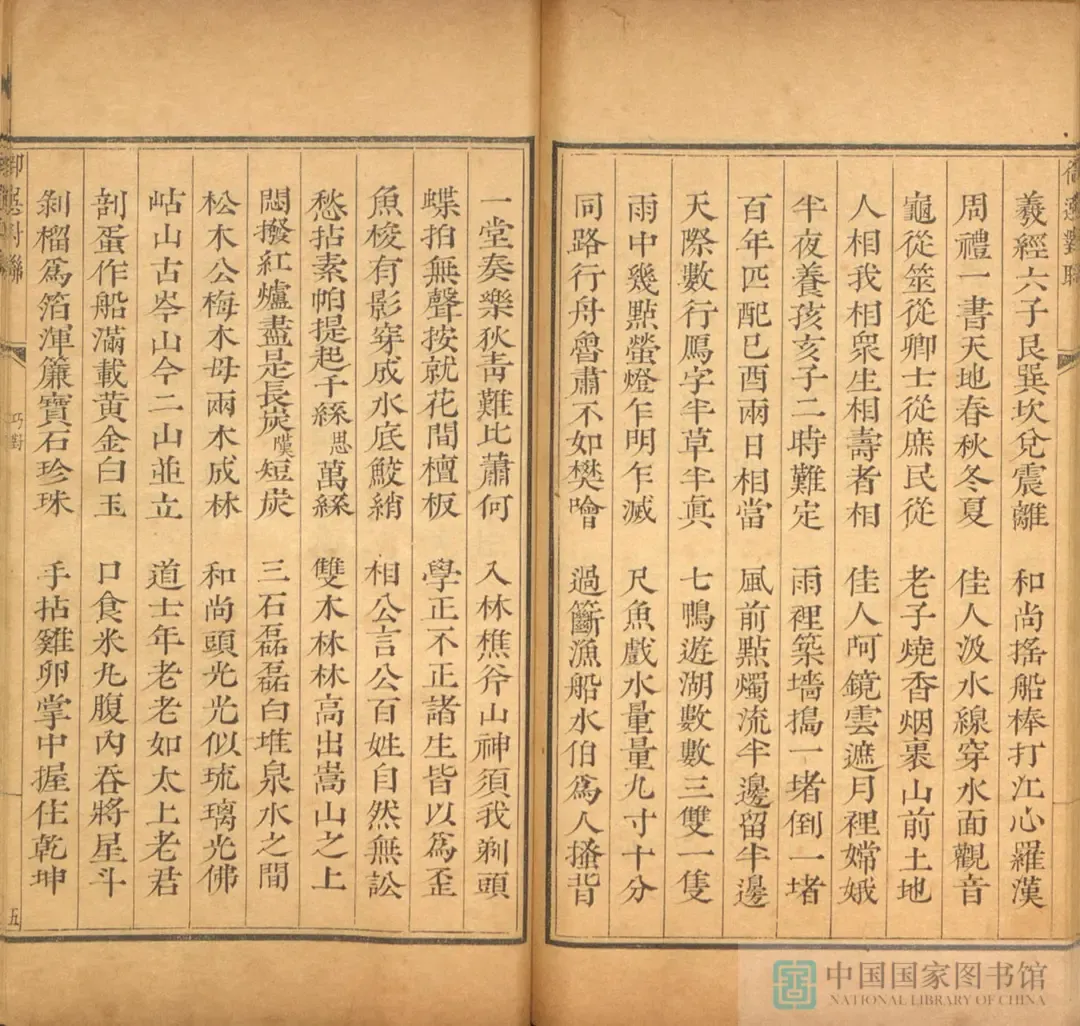 羲經六子艮巽坎兌震離 和尚搖船棒打江心羅漢
周禮一書天地春秋冬夏 佳人汲水線穿水面觀音
龜從筮從卿士從庶民從 老子燒香烟裹山前土地
人相我相眾生相壽者相 佳人阿鏡雲遮月裡嫦娥
半夜養孩亥子二時難定 雨裡築墻搗一堵倒一堵
百年匹配巳酉兩日相當 風前點燭流半邊留半邊
天際數行鴈字半草半真 七鴨遊湖數數三雙一隻
雨中幾點螢燈乍明乍滅 尺魚戲水量量九寸十分
同路行舟魯肅不如樊噲 過籪漁船水伯為人搔背
一堂奏樂狄青難比蕭何 入林樵斧山神須我剃頭
蝶拍無聲按就花間檀板 學正不正諸生皆以為歪
魚梭有影穿成水底鮫綃 相公言公百姓自然無訟
愁拈素帕提起千絲思萬絲 雙木林林高出嵩山之上
悶撥紅爐盡是長炭嘆短炭 三石磊磊白堆泉水之間
松木公梅木母兩木成林 和尚頭光光似琉璃光佛
岵山古岑山今二山並立 道士年老老如太上老君
剖蛋作船滿載黃金白玉 口食米丸腹內吞將星斗
剝榴為箔渾簾寶石珍珠 手拈雞卵掌中握住乾坤
巧對
五
中国国家图书馆
NATIONAL LIBRARY OF CHINA